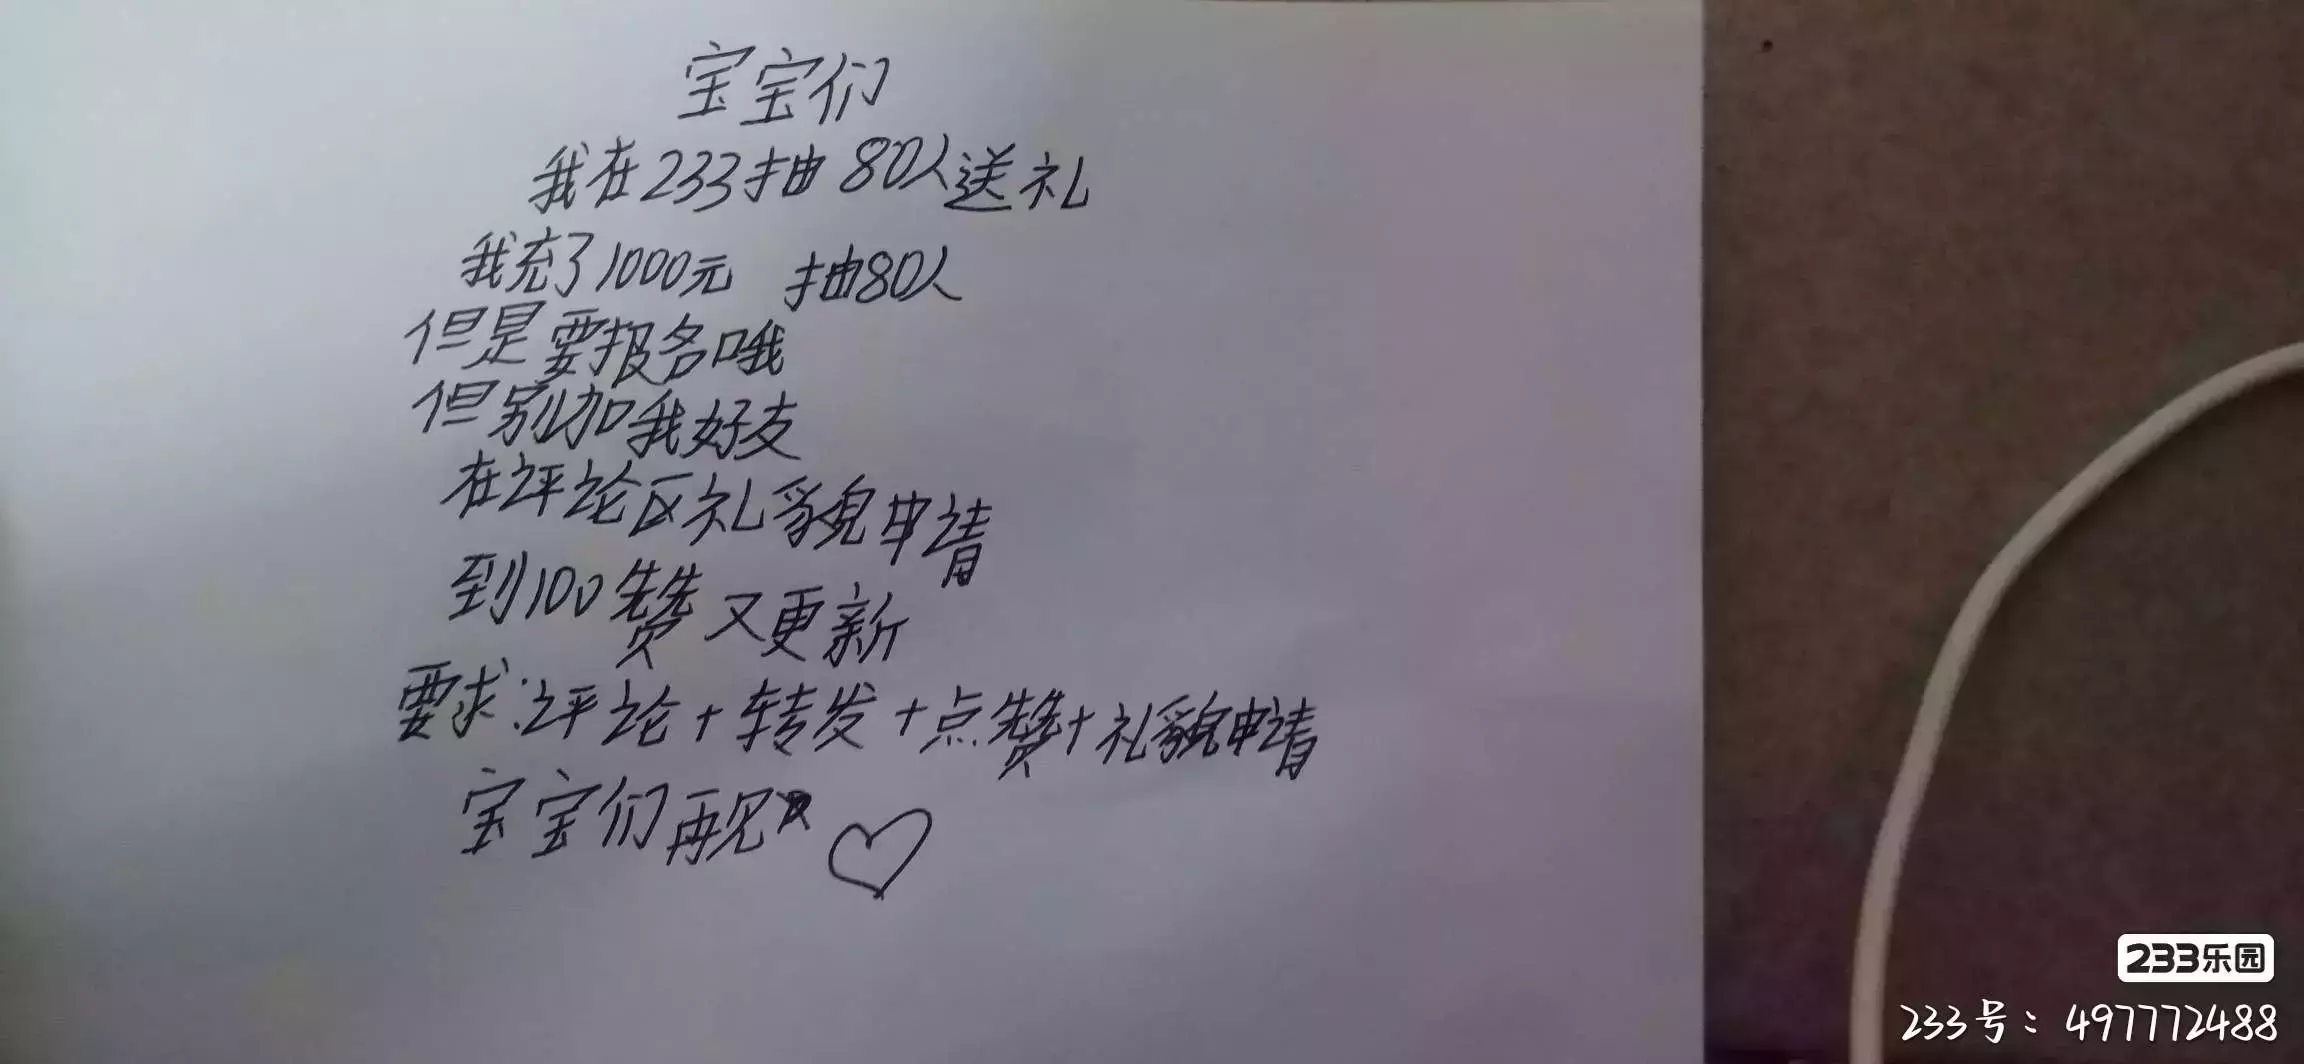 宝宝们
我在233抽80人送礼
我充了1000元 抽80人
但是要报名哦
但别加我好友
在评论区礼貌申请
到100赞又更新
要求:评论+转发+点赞+礼貌申请
宝宝们再见
233乐园
233号：497772488